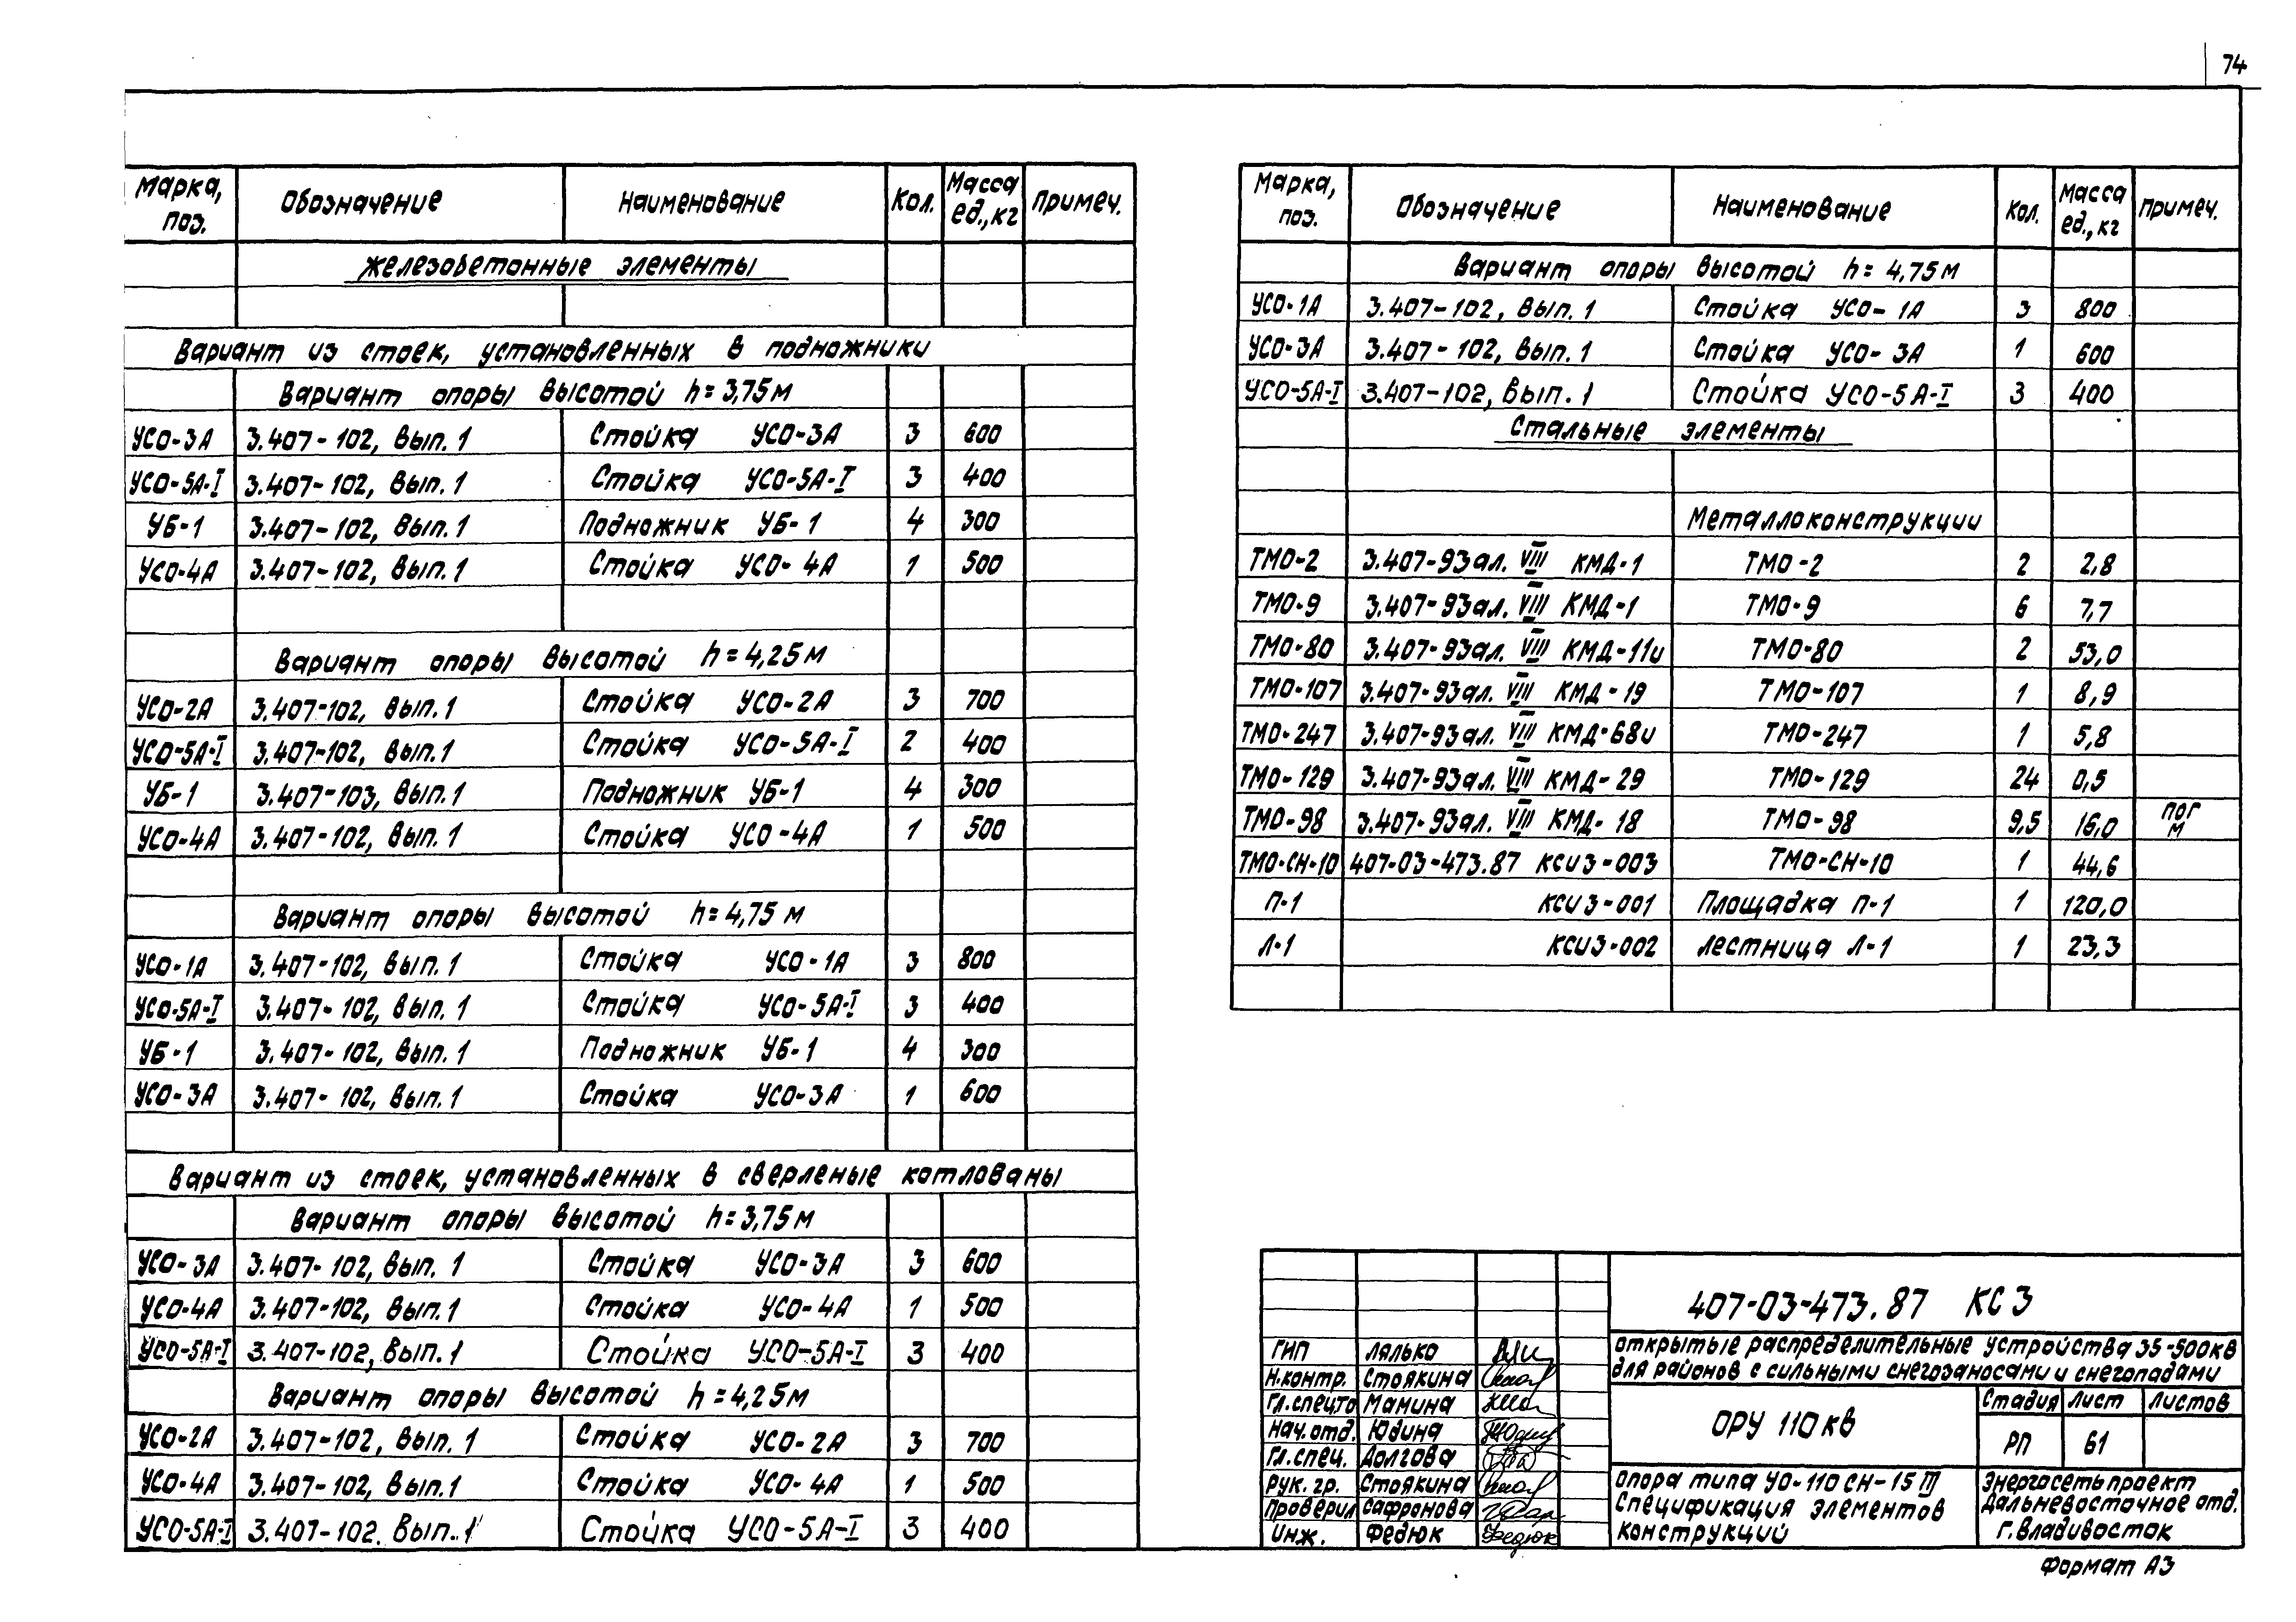 74
Марка, поз. Обозначение Наименование Кол. Масса ед., кг Примеч.
Железобетонные элементы
Вариант из стоек, установленных в подножники
Вариант опоры высотой h=3,75м
УСО-3А 3.407-102, Вып. 1 Стойка УСО-3А 3 600
УСО-5А-I 3.407-102, Вып. 1 Стойка УСО-5А-I 3 400
УБ-1 3.407-102, Вып. 1 Подножник УБ-1 4 300
УСО-4А 3.407-102, Вып. 1 Стойка УСО-4А 1 500
Вариант опоры высотой h=4,25м
УСО-2А 3.407-102, Вып. 1 Стойка УСО-2А 3 700
УСО-5А-I 3.407-102, Вып. 1 Стойка УСО-5А-I 2 400
УБ-1 3.407-103, Вып. 1 Подножник УБ-1 4 300
УСО-4А 3.407-102, Вып. 1 Стойка УСО-4А 1 500
Вариант опоры высотой h=4,75 м
УСО-1А 3.407-102, Вып. 1 Стойка УСО-1А 3 800
УСО-5А-I 3.407-102, Вып. 1 Стойка УСО-5А-I 3 400
УБ-1 3.407-102, Вып. 1 Подножник УБ-1 4 300
УСО-3А 3.407-102, Вып. 1 Стойка УСО-3А 1 600
Вариант из стоек, установленных в сверленые котлованы
Вариант опоры высотой h=3,75м
УСО-3А 3.407-102, Вып. 1 Стойка УСО-3А 3 600
УСО-4А 3.407-102, Вып. 1 Стойка УСО-4А 1 500
УСО-5А-I 3.407-102, Вып. 1 Стойка УСО-5А-I 3 400
Вариант опоры высотой h=4,25м
УСО-2А 3.407-102, Вып. 1 Стойка УСО-2А 3 700
УСО-4А 3.407-102, Вып. 1 Стойка УСО-4А 1 500
УСО-5А-I 3.407-102. Вып. 1 Стойка УСО-5А-I 3 400
Марка, поз. Обозначение Наименование Кол. Масса ед., кг Примеч.
Вариант опоры высотой h=4,75м
УСО-1А 3.407-102, Вып. 1 Стойка УСО-1А 3 800
УСО-3А 3.407-102, Вып. 1 Стойка УСО-3А 1 600
УСО-5А-I 3.407-102, Вып. 1 Стойка УСО-5А-I 3 400
Стальные элементы
Металлоконструкции
ТМО-2 3.407-93ал. VIII КМД-1 ТМО-2 2 2,8
ТМО-9 3.407-93ал. VIII КМД-1 ТМО-9 6 7,7
ТМО-80 3.407-93ал. VIII КМД-11и ТМО-80 2 53,0
ТМО-107 3.407-93ал. VIII КМД-19 ТМО-107 1 8,9
ТМО-247 3.407-93ал. VIII КМД-68и ТМО-247 1 5,8
ТМО-129 3.407-93ал. VIII КМД-29 ТМО-129 24 0,5
ТМО-98 3.407-93ал. VIII КМД-18 ТМО-98 9,5 16,0 пог м
ТМО-СН-10 407-03-473.87 КСИ3-003 ТМО-СН-10 1 44,6
П-1 КСИ3-001 Площадка П-1 1 120,0
Л-1 КСИ3-002 Лестница Л-1 1 23,3
407-03-473.87 КС3
Открытые распределительные устройства 35-500кв
для районов с сильными снегозаносами и снегопадами
ГИП Лялько
Н.контр. Стоякина
Гл.спецто Мамина
Нач.отд. Юдина
Гл.спец. Долгова
Рук. гр. Стоякина
Проверил Сафронова
Инж. Федюк Федюк
ОРУ 110кв
Стадия Лист Листов
РП 61
Опора типа УО-110СН-15 III
Спецификация элементов
конструкций
Энергосетьпроект
Дальневосточное отд.
г.Владивосток
Формат А3